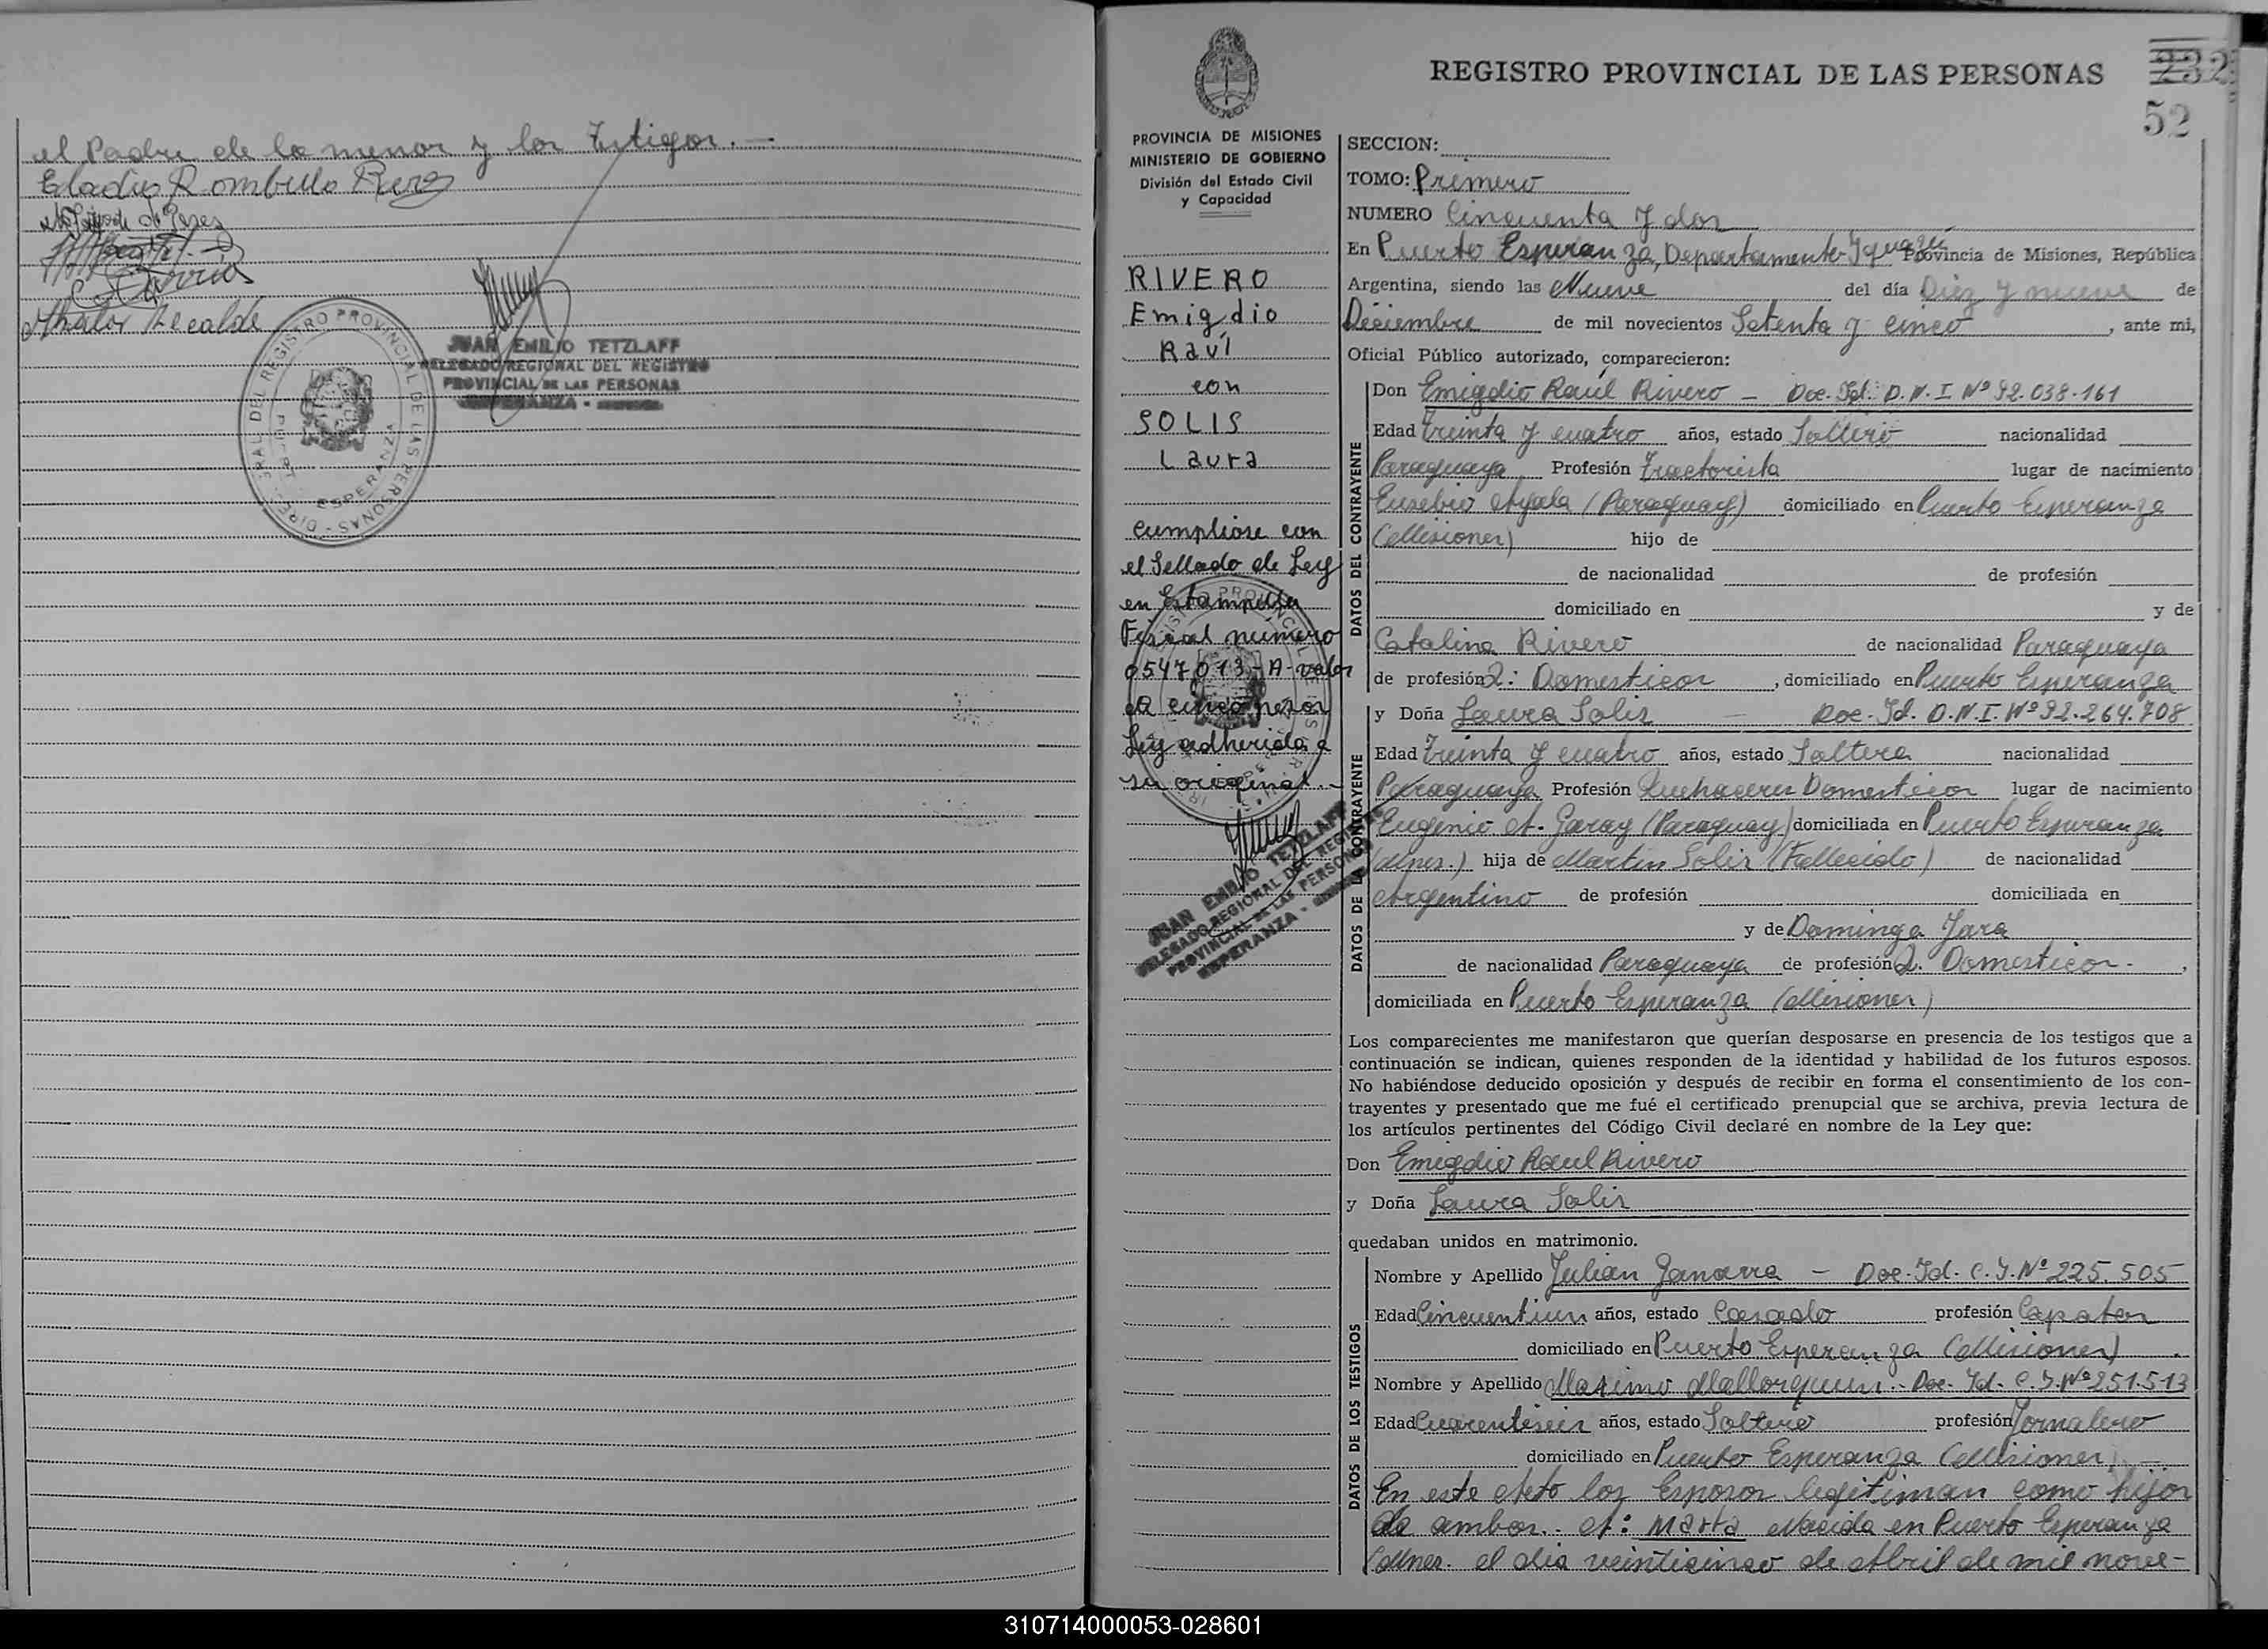 el Padre de la menor y los Testigos. —
Eladio Rombulo Perez
Recalde
JUAN EMILIO TETZLAFF
DELEGADO REGIONAL DEL REGISTRO
PROVINCIAL DE LAS PERSONAS
ESPERANZA -
REGISTRO PROVINCIAL DE LAS PERSONAS
ESPERANZA
REGISTRO PROVINCIAL DE LAS PERSONAS
232
52
PROVINCIA DE MISIONES
MINISTERIO DE GOBIERNO
División del Estado Civil
y Capacidad
RIVERO
Emigdio
Raúl
con
SOLIS
Laura
cumpliose con
el Sellado de Ley
en Estampilla
Fiscal numero
0547013-A-valor
de cinco pesos
Ley adherida a
su original.-
JUAN EMILIO TETZLAFF
DELEGADO REGIONAL DEL REGISTRO
PROVINCIAL DE LAS PERSONAS
ESPERANZA -
SECCION:
TOMO: Primero
NUMERO Cincuenta y dos
En Puerto Esperanza, Departamento Iguazú Provincia de Misiones, República
Argentina, siendo las Nueve del día Diez y nueve de
Diciembre de mil novecientos Setenta y cinco, ante mi,
Oficial Público autorizado, comparecieron:
DATOS DEL CONTRAYENTE
Don Emigdio Raúl Rivero — Doc. Id: D.N.I Nº 92.038.161
Edad Treinta y cuatro años, estado Soltero nacionalidad
Paraguaya Profesión Tractorista lugar de nacimiento
Eusebio Ayala (Paraguay) domiciliado en Puerto Esperanza
(Misiones) hijo de
de nacionalidad de profesión
domiciliado en y de
Catalina Rivero de nacionalidad Paraguaya
de profesión Q: Domesticos, domiciliado en Puerto Esperanza
DATOS DE LA CONTRAYENTE
y Doña Laura Solis — Doc. Id. D.N.I. Nº 92.264.708
Edad Treinta y cuatro años, estado Soltera nacionalidad
Paraguaya Profesión Quehaceres Domesticos lugar de nacimiento
Eugenio A. Garay (Paraguay) domiciliada en Puerto Esperanza
(Mnes.) hija de Martin Solis (Fallecido) de nacionalidad
Argentino de profesión domiciliada en
y de Dominga Jara
de nacionalidad Paraguaya de profesión Q. Domesticos.-,
domiciliada en Puerto Esperanza (Misiones)
Los comparecientes me manifestaron que querían desposarse en presencia de los testigos que a
continuación se indican, quienes responden de la identidad y habilidad de los futuros esposos.
No habiéndose deducido oposición y después de recibir en forma el consentimiento de los con-
trayentes y presentado que me fué el certificado prenupcial que se archiva, previa lectura de
los artículos pertinentes del Código Civil declaré en nombre de la Ley que:
Don Emigdio Raul Rivero
y Doña Laura Solis
quedaban unidos en matrimonio.
DATOS DE LOS TESTIGOS
Nombre y Apellido Julian — Doc. Id. C.I. Nº 225.505
Edad Cincuentiun años, estado Casado profesión Capataz
domiciliado en Puerto Esperanza (Misiones)
Nombre y Apellido Maximo Mallorquin.- Doc. Id. C.I. Nº 251.513
Edad Cuarentiseis años, estado Soltero profesión Jornalero
domiciliado en Puerto Esperanza (Misiones)
En este Acto los Esposos legitiman como hijos
de ambos.. A: Marta Nacida en Puerto Esperanza
(Mnes. el dia veinticinco de Abril de mil nove-
310714000053-028601